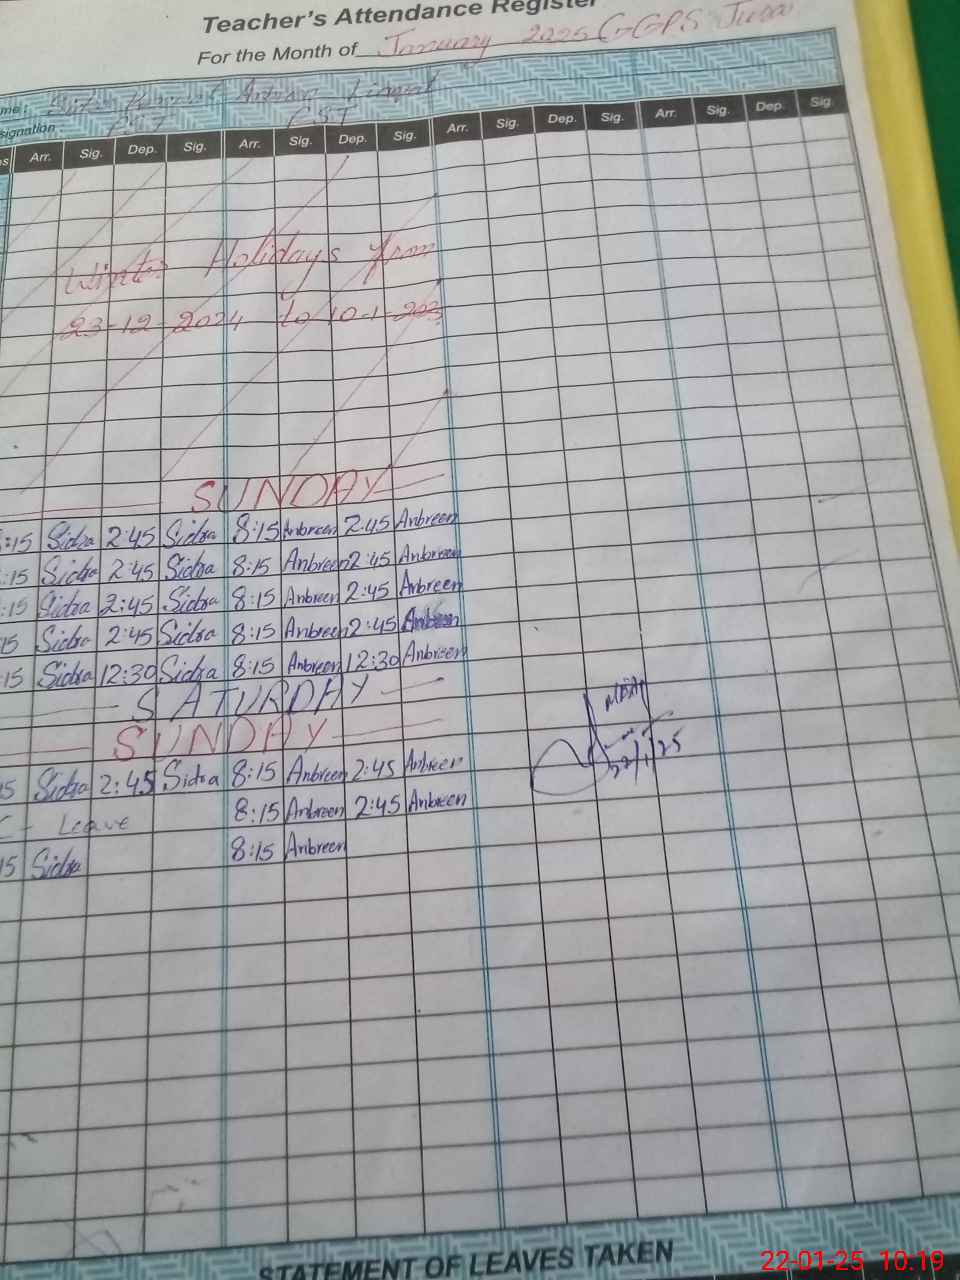 Teacher's Attendance Register
For the Month of January 2025 GGPS
me: Anbreen
signation PST PST
es Arr. Sig. Dep. Sig. Arr. Sig. Dep. Sig. Arr. Sig. Dep. Sig. Arr. Sig. Dep. Sig.
Winter Holidays from
23-12-2024 to 10-1-202
SUNDAY
:15 Sidra 2:45 Sidra 8:15 Anbreen 2:45 Anbreen
:15 Sidra 2:45 Sidra 8:15 Anbreen 2:45 Anbreen
:15 Sidra 2:45 Sidra 8:15 Anbreen 2:45 Anbreen
15 Sidra 2:45 Sidra 8:15 Anbreen 2:45 Anbreen
15 Sidra 12:30 Sidra 8:15 Anbreen 12:30 Anbreen
SATURDAY
SUNDAY
22/1/25
5 Sidra 2:45 Sidra 8:15 Anbreen 2:45 Anbreen
C - Leave 8:15 Anbreen 2:45 Anbreen
15 Sidra 8:15 Anbreen
STATEMENT OF LEAVES TAKEN
22-01-25 10:19